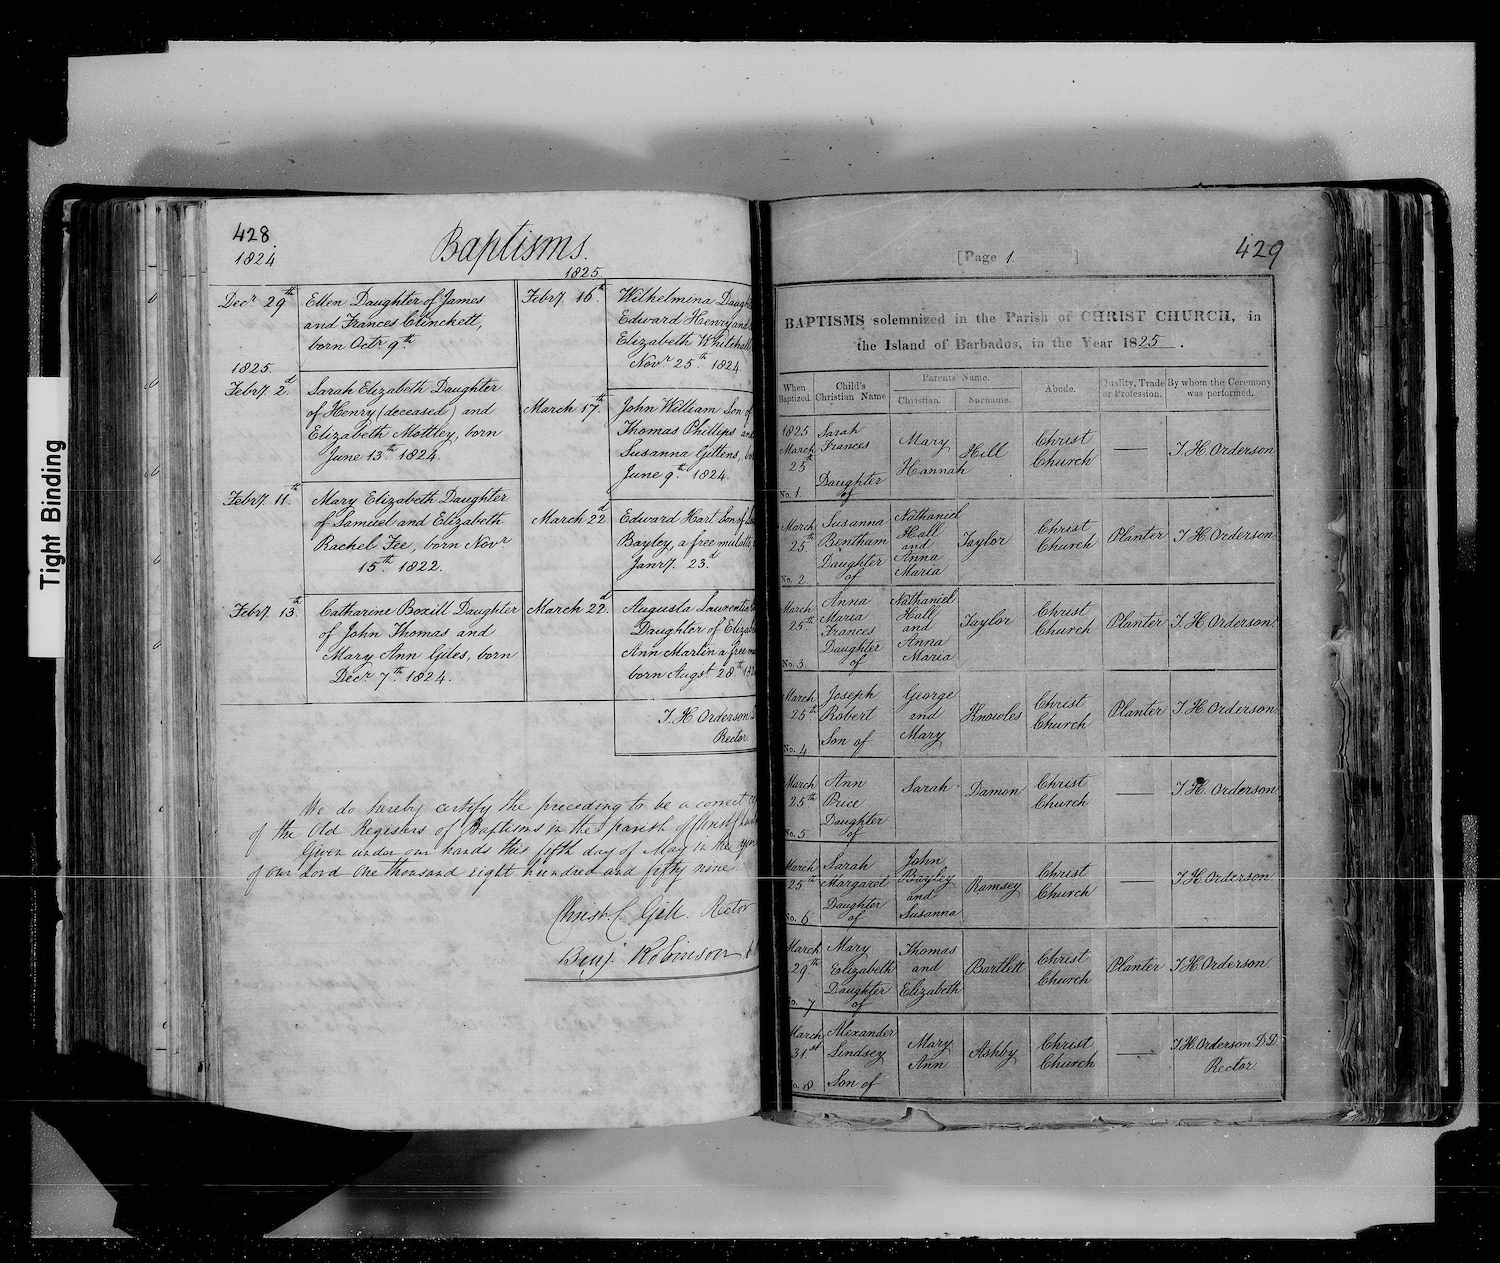 Tight Binding
428
1824
Baptisms.
Decr 29th
Ellen Daughter of James
and Frances Clinckett,
born Octr 9th
1825.
Febry. 2d.
Sarah Elizabeth Daughter
of Henry (deceased) and
Elizabeth Mottley, born
June 13th 1824.
Febry. 11th
Mary Elizabeth Daughter
of Samuel and Elizabeth
Rachel Fee, born Novr
15th 1822.
Febry. 13th
Catharine Boxill Daughter
of John Thomas and
Mary Ann Giles, born
Decr 7th 1824.
1825
Febry. 16th
Wilhelmina Daugh
Edward Henry and
Elizabeth Whitehall
Novr 25th 1824
March 17th
John William Son of
Thomas Phillips and
Susanna Gittens,
June 9th 1824.
March 22d
Edward Hart Son of
Bayley, a free mulatto
Janry. 23d
March 22d.
Augusta
Daughter of Elizab
Ann Martin a free
born Augst 28th
T. H Orderson
Rector
We do hereby certify the preceding to be a correct
of the Old Registers of Baptisms in the parish of Christ
Given under our hands this fifth day of May in the
of our Lord One thousand eight hundred and fifty nine
Christ. C. Gill. Rector
Benj. Robinson
429
[Page 1 ]
BAPTISMS solemnized in the Parish of CHRIST CHURCH, in
the Island of Barbados, in the Year 1825.
When Baptized.
Child's Christian Name
Parents Name.
Christian.
Surname.
Abode.
Quality, Trade or Profession.
By whom the Ceremony was performed.
1825 March 25th No. 1
Sarah Frances Daughter of
Mary Hannah
Hill
Christ Church
—
T H. Orderson
March 25th No. 2
Susanna Bentham Daughter of
Nathaniel Hall and Anna Maria
Taylor
Christ Church
Planter
T H. Orderson
March 25th No. 3
Anna Maria Frances Daughter of
Nathaniel Hall and Anna Maria
Taylor
Christ Church
Planter
T H. Orderson
March 25th No. 4
Joseph Robert Son of
George and Mary
Knowles
Christ Church
Planter
T H Orderson
March 25th No. 5
Ann Price Daughter of
Sarah
Damon
Christ Church
—
T H. Orderson
March 25th No. 6
Sarah Margaret Daughter of
John Bayley and Susanna
Ramsey
Christ Church
—
T H Orderson
March 29th No. 7
Mary Elizabeth Daughter of
Thomas and Elizabeth
Bartlett
Christ Church
Planter
T H Orderson
March 31st No. 8
Alexander Lindsey Son of
Mary Ann
Ashby
Christ Church
—
T H. Orderson D.D.
Rector